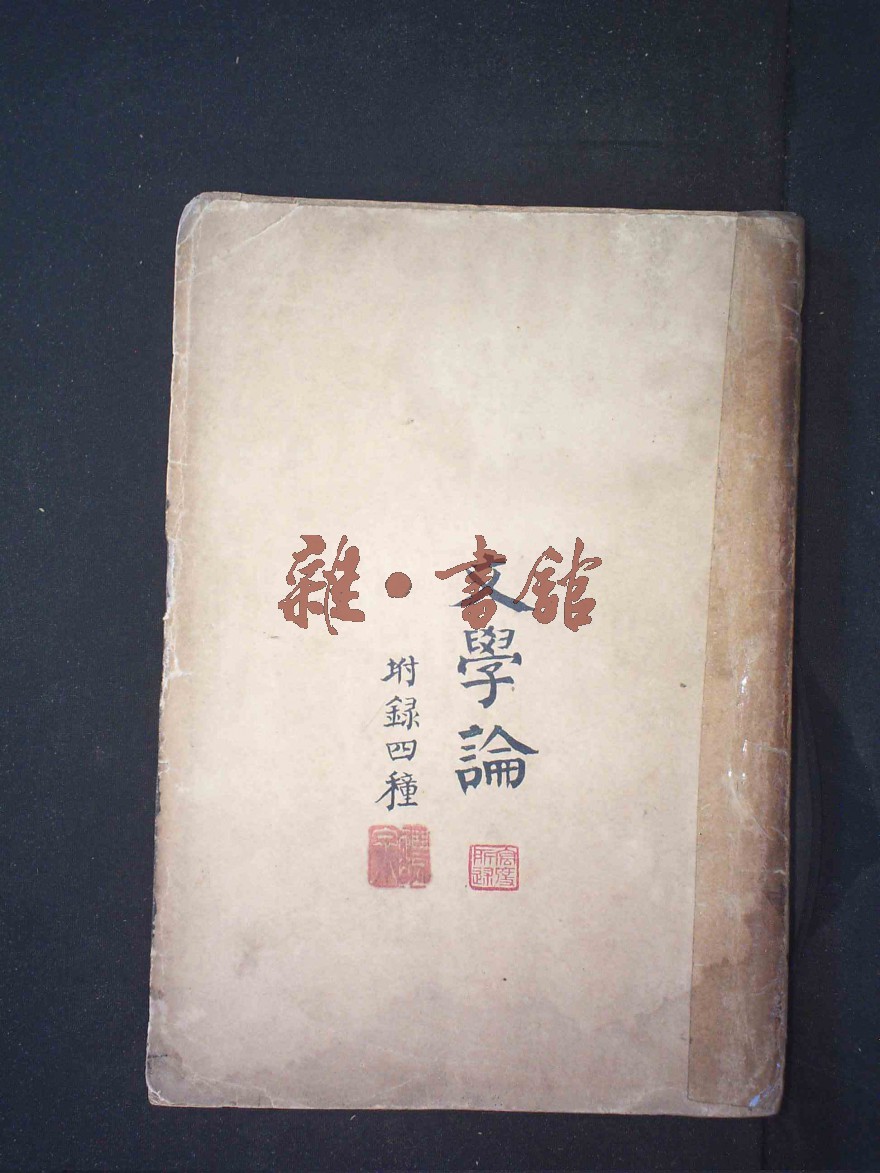 雜·書館
文學論
坿録四種